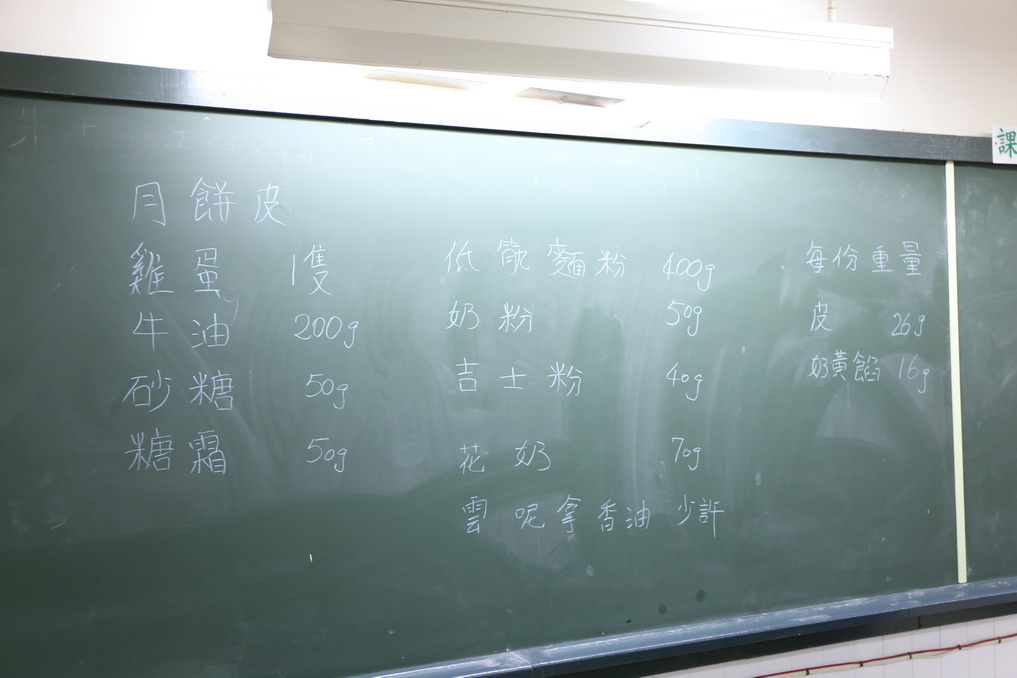 月餅皮
雞蛋 1隻
牛油 200g
砂糖 50g
糖霜 50g
低筋麵粉 400g
奶粉 50g
吉士粉 40g
花奶 70g
雲呢拿香油 少許
每份重量
皮 26g
奶黃餡 16g
課